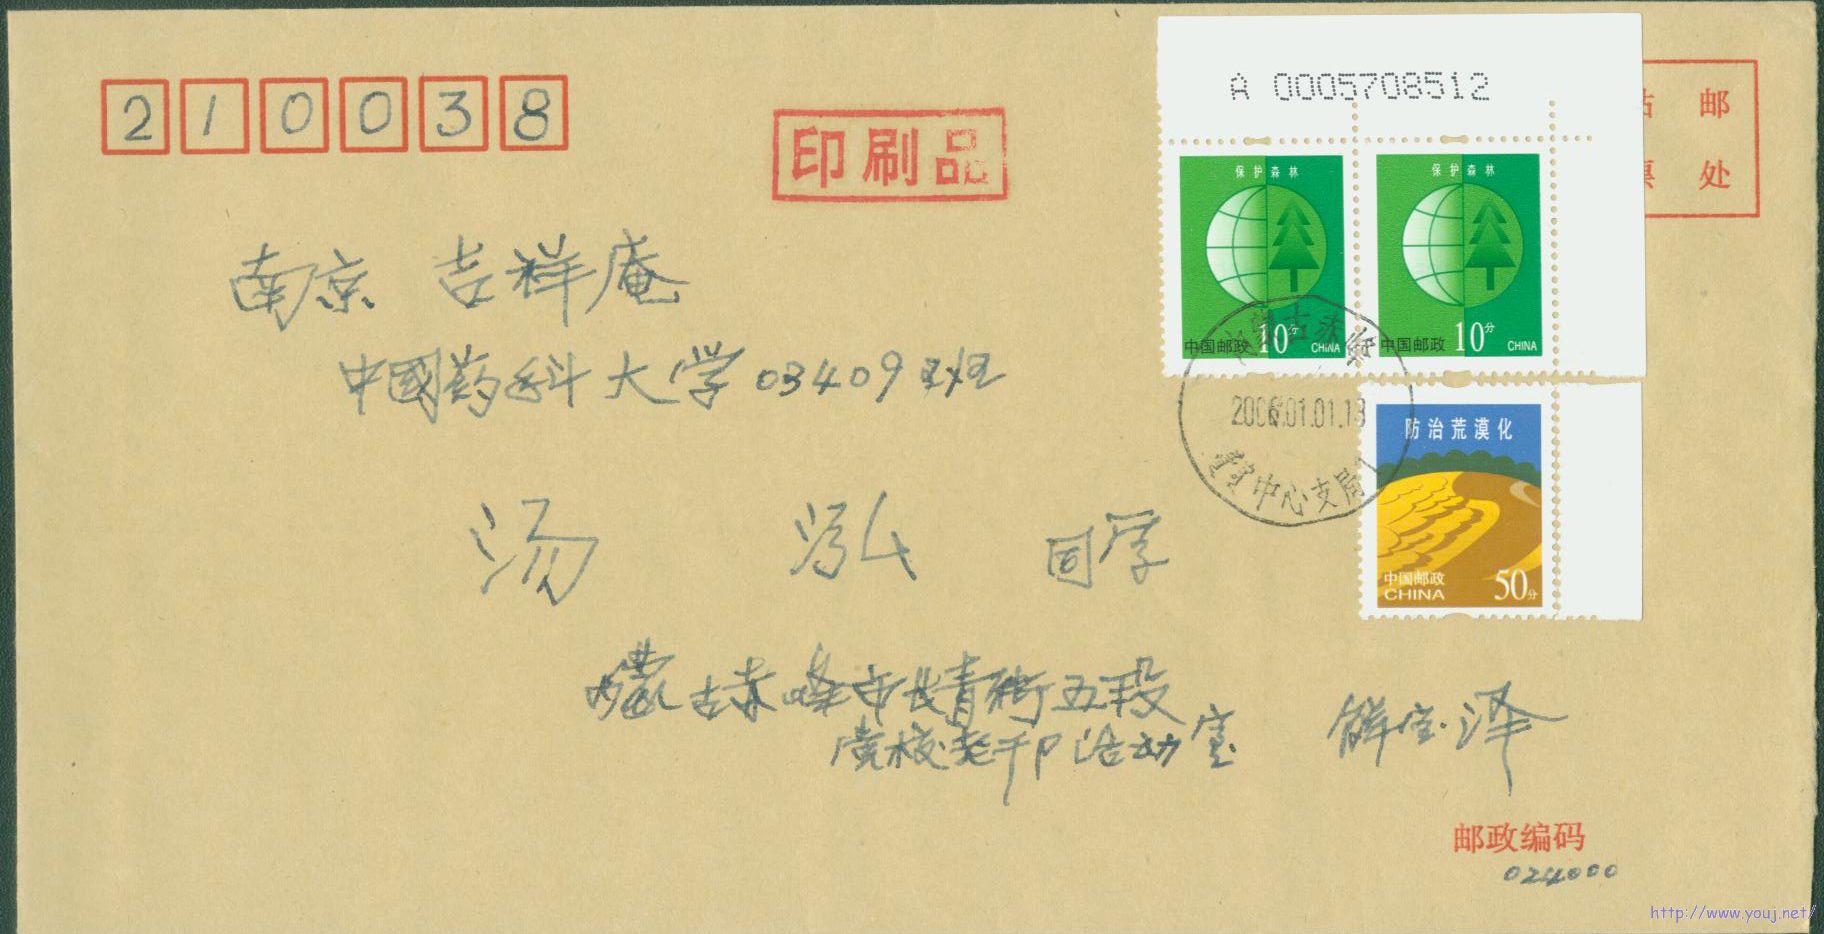 210038
印刷品
A 0005708512
邮
处
保护森林
中国邮政 10分 CHINA
保护森林
中国邮政 10分 CHINA
南京 吉祥庵
中國药科大学 03409班
内蒙古赤峰
2006.01.01.18
中心支局
防治荒漠化
中国邮政
CHINA 50分
汤 泓 同学
内蒙古赤峰市长青街五段
党校老干部活动室
宝泽
邮政编码
024000
http://www.youj.net/